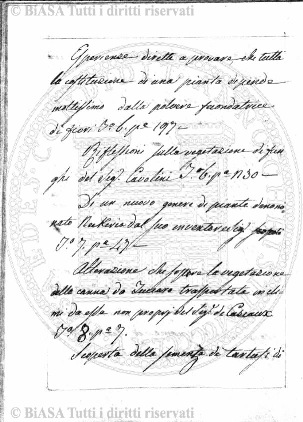 © BiASA Tutti i diritti riservati
Esperienze dirette a provare che tutta
la costituzione di una pianta dipende
moltissimo dalla polvere fecondatrice
di fiori Tº 6. pª 197 =
Riflessioni sulla vegetazione di fun
ghi del Sigʳ Cavolini Tº 6. pª 1130 =
Di un nuovo genere di piante denomi
nato dal suo inventore Sigʳ
Tº 7. pª 47 =
Alterazione che soffre la vegetazione
della canna da Zucaro trasportata in cli
mi da essa non proprj del Sigʳ de Caseaux
Tº 8. pª 7.
Scoperta della semenza di tartufi di
© BiASA Tutti i diritti riservati